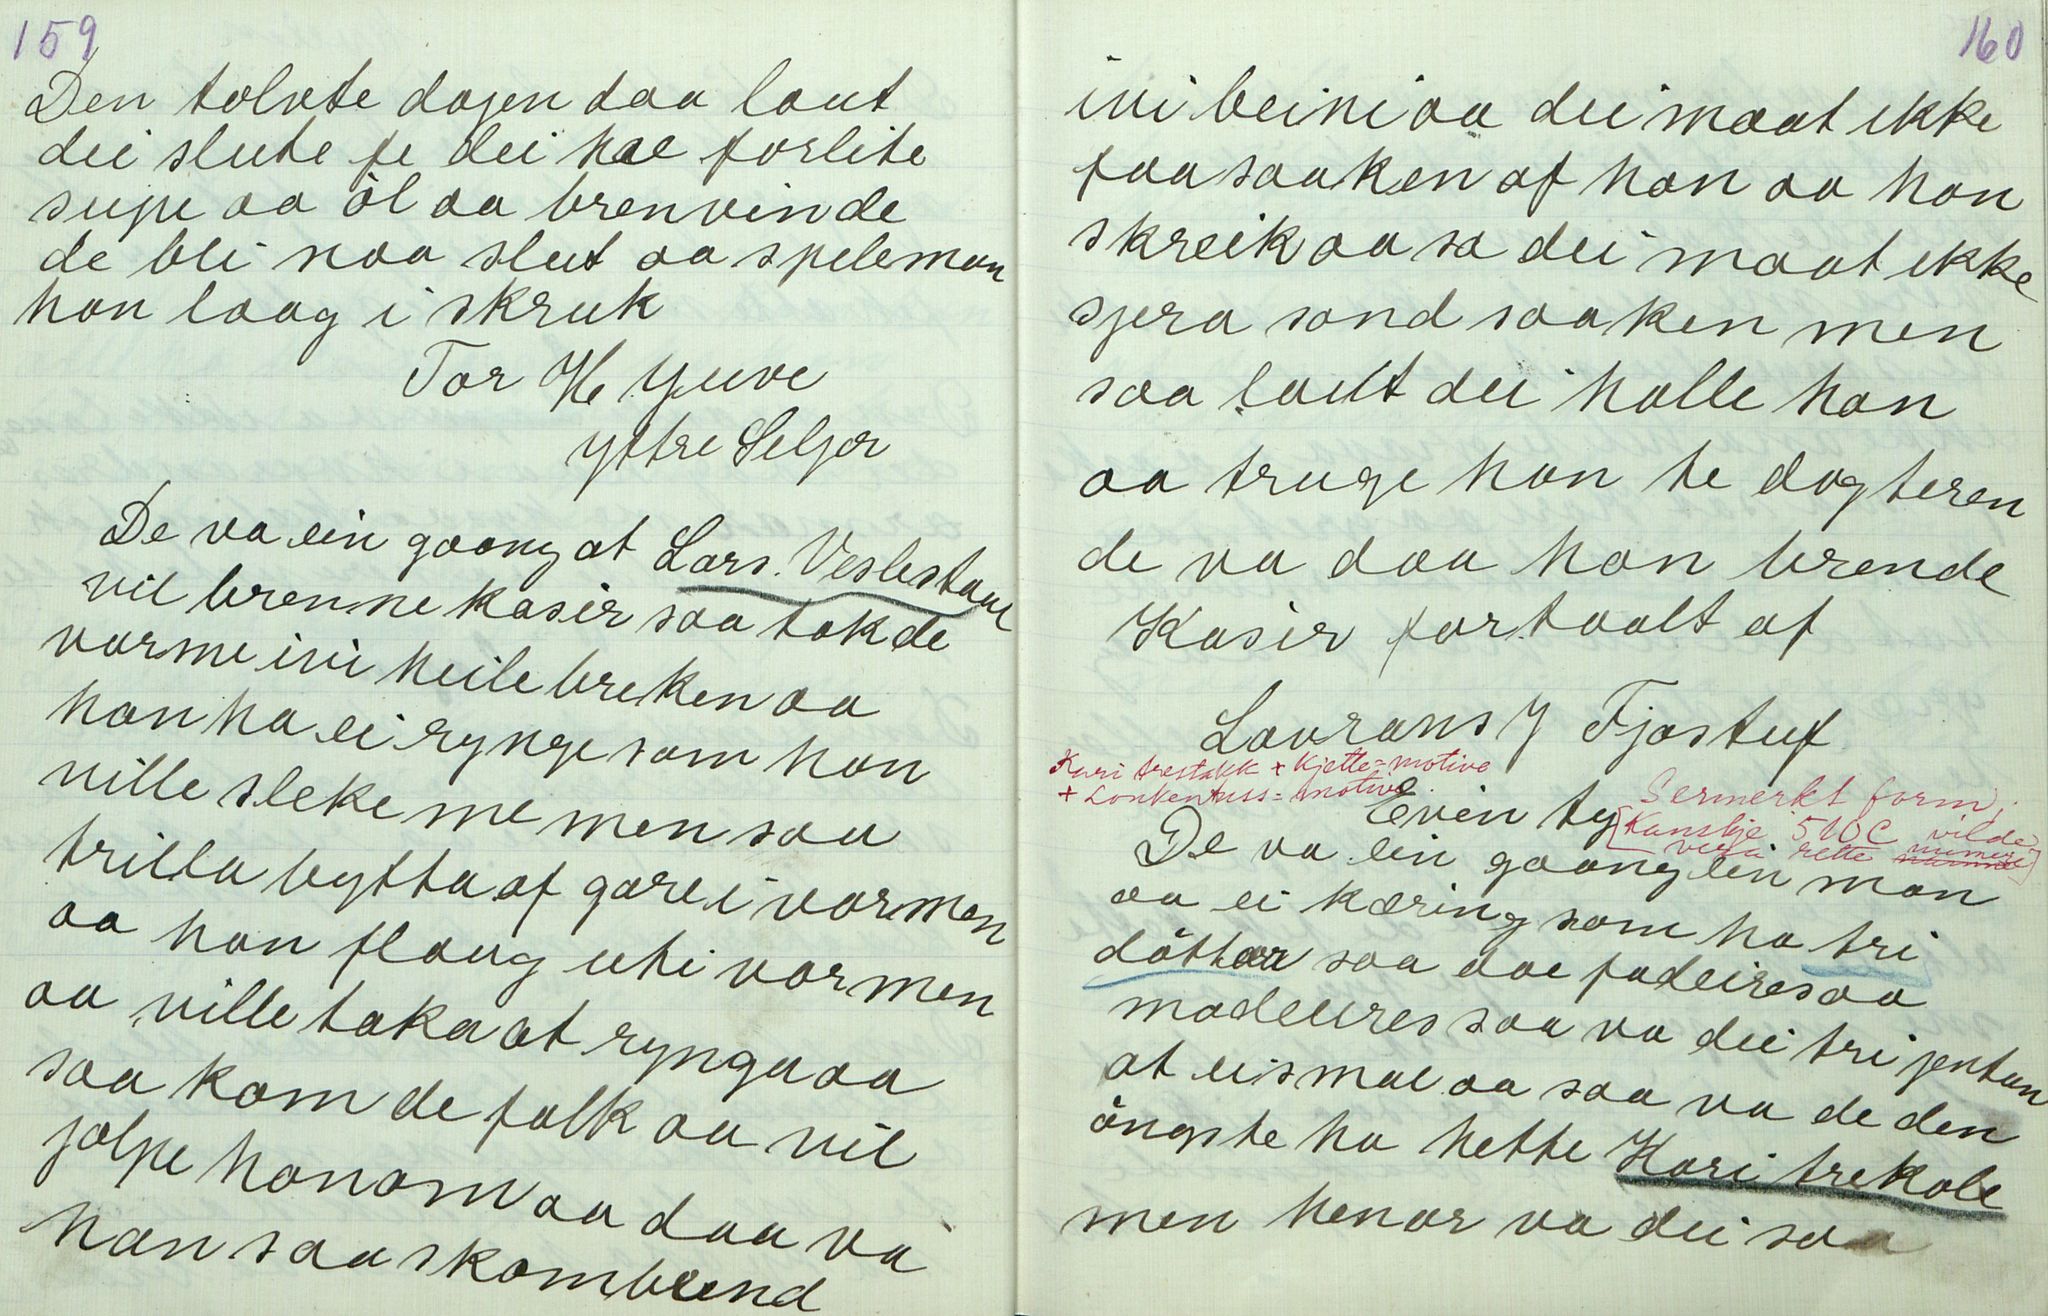 159
Den tolvte dagen daa laut
dei slute fe dei hae forlite
supe aa øl aa brenvin de
de bli naa slut aa speleman
han laag i skruk
Tor H. Yuve
Yttre Seljor
De va ein gaang at Lars Veslestaul
vil brenne kasir saa tok de
varme ivi heile breken aa
han ha ei rynge som han
ville sleke me men saa
trilla bytta af gare i varmen
aa han flaug uti varmen
aa ville taka at rynga aa
saa kom de folk aa vil
jølpe honom aa daa va
han saa skambrend
160
ivi beini aa dei maat ikke
faa saaken af han aa han
skreik aa sa dei maat ikke
sjera sond saaken men
saa laut dei halle han
aa truge han te dogteren
de va daa han brende
Kasir fortaalt af
Lavrans J Fjostuf
Kari trestakk + Kjette-motive
+ Lonkentuss-motive
Even ty
Sermerkt form.
[Kanskje 510C vilde
vera rette numeri]
De va ein gaang ein man
aa ei kæring som ha tri
døttar saa doe fadeires aa
modeires saa va dei tri jentun
at eismal aa saa va de den
øngste ha hette Kari trekole
men henar va dei saa